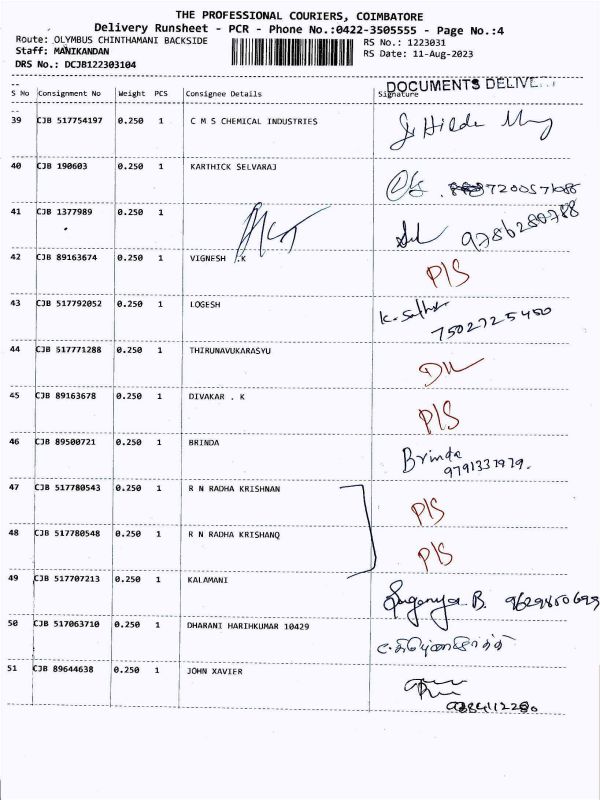 THE PROFESSIONAL COURIERS, COIMBATORE
Delivery Runsheet - PCR - Phone No.:0422-3505555 - Page No.:4
Route: OLYMBUS CHINTHAMANI BACKSIDE RS No.: 1223031
Staff: MANIKANDAN RS Date: 11-Aug-2023
DRS No.: DCJB122303104
DOCUMENTS DELIVE...
S No Consignment No Weight PCS Consignee Details Signature
39 CJB 517754197 0.250 1 C M S CHEMICAL INDUSTRIES
40 CJB 190603 0.250 1 KARTHICK SELVARAJ
41 CJB 1377989 0.250 1 9786280788
42 CJB 89163674 0.250 1 VIGNESH .K P/S
43 CJB 517792052 0.250 1 LOGESH
7502725450
44 CJB 517771288 0.250 1 THIRUNAVUKARASYU
45 CJB 89163678 0.250 1 DIVAKAR . K P/S
46 CJB 89500721 0.250 1 BRINDA Brinda
9791331979.
47 CJB 517780543 0.250 1 R N RADHA KRISHNAN P/S
48 CJB 517780548 0.250 1 R N RADHA KRISHANQ P/S
49 CJB 517707213 0.250 1 KALAMANI Suganya B. 9629850699
50 CJB 517063710 0.250 1 DHARANI HARIHKUMAR 10429
51 CJB 89644638 0.250 1 JOHN XAVIER